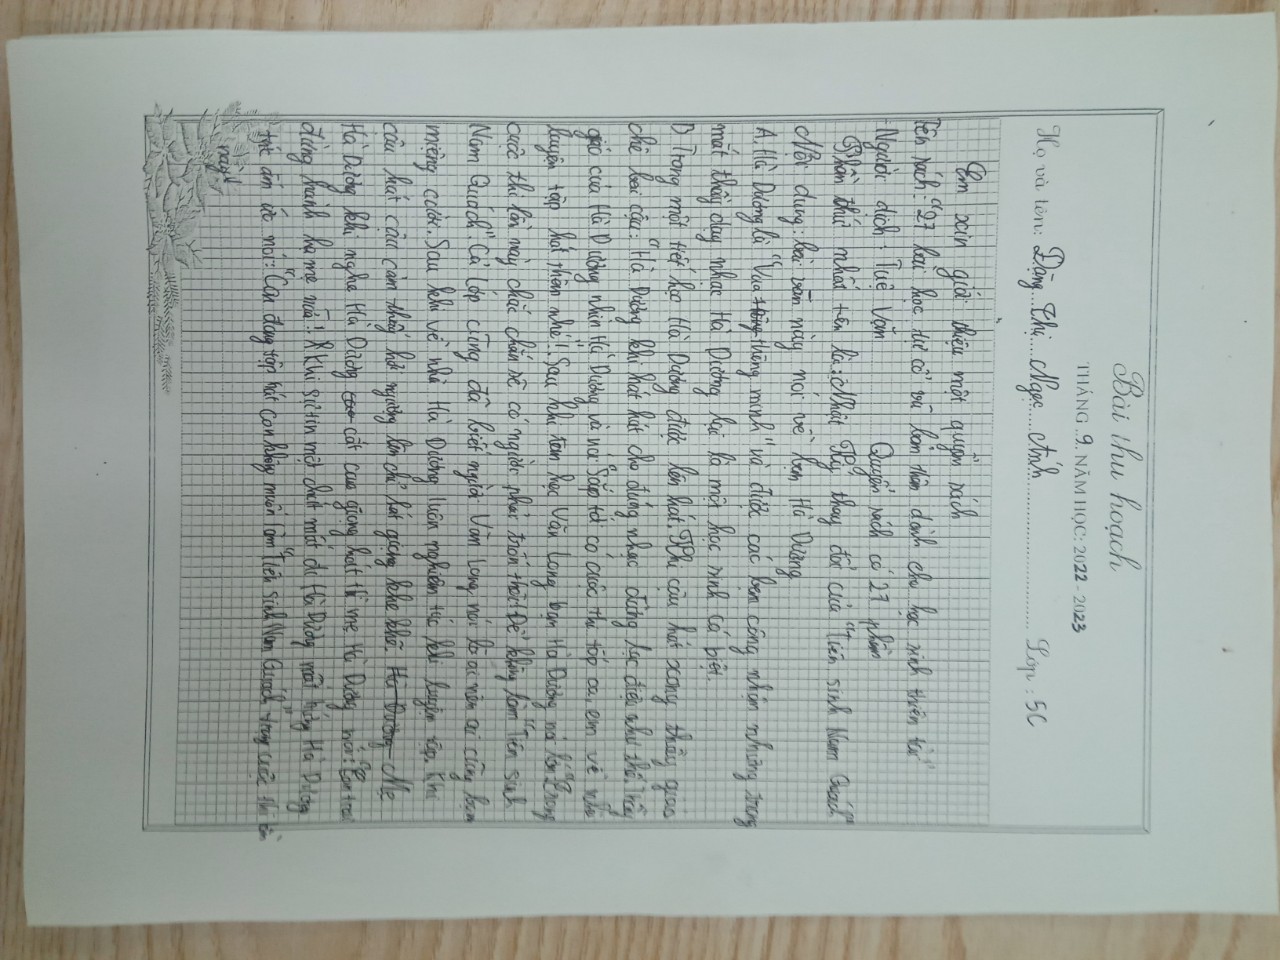 Bài thu hoạch
THÁNG 9. NĂM HỌC: 2022-2023
Họ và tên: Đặng Thị Ngọc Ánh Lớp: 5C
Em xin giới thiệu một quyển sách
Tên sách: "27 bài học tự cổ vũ bản thân dành cho học sinh thiên tài"
-Người dịch: Tuệ Văn Quyển sách có 27 phần
Phần thứ nhất tên là: Nhật Ký thay đổi của "Tiên sinh Nam Quách"
Nội dung: bài văn này nói về bạn Hà Dương
A, Hà Dương là "Vua thông minh" và được các bạn công nhận nhưng trong
mắt thầy dạy nhạc Hà Dương lại là một học sinh cá biệt.
Trong một tiết học Hà Dương được lên hát, Khi cậu hát xong thầy giáo
chê bai cậu: "Hà Dương khi hát hát cho đúng nhạc đừng lạc điệu như thế" thầy
giáo của Hà Dương nhìn Hà Dương và nói "Sắp tới có cuộc thi tốp ca, em về nhà
luyện tập hát thêm nhé!". Sau khi tan học Văn Long bạn Hà Dương nói lớn "Trong
cuộc thi lần này chắc chắn sẽ có người phải trốn thôi! Để không làm "Tiên sinh
Nam Quách" Cả lớp cũng đã biết người Văn Long nói là ai nên ai cũng bụm
miệng cười. Sau khi về nhà Hà Dương luôn nghiêm túc khi luyện tập, Khi
câu hát cậu cảm thấy hơi ngượng lên chỉ hát giọng khe khẽ. Mẹ
Hà Dương khi nghe Hà Dương cất cao giọng hát thì mẹ Hà Dương nói: "Con trai
đừng hành hạ mẹ nữa!" Khi sự tự tin một chút mất đi Hà Dương mất hứng Hà Dương
tức ấm ức nói: "Con đang tập hát con không muốn làm "Tiên sinh Nam Quách" trong cuộc thi lần
này!"